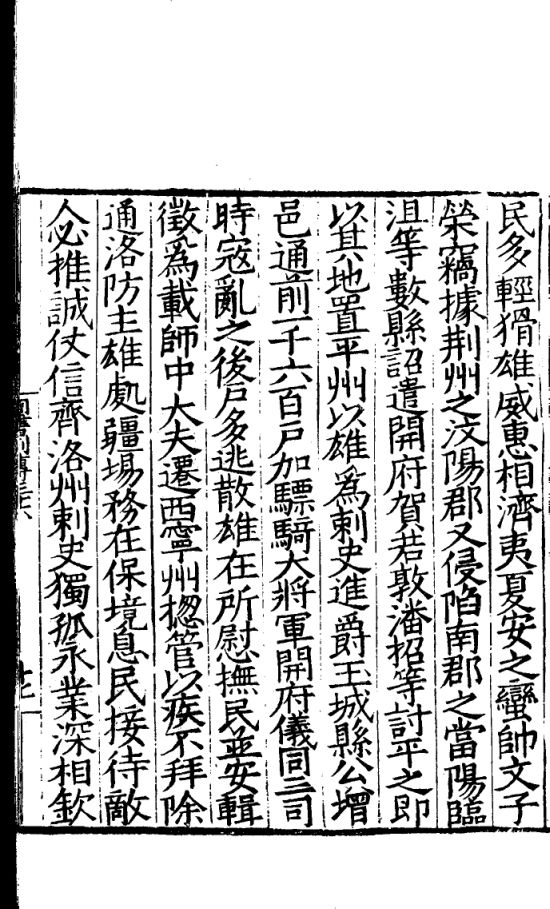 民多輕猾雄威惠相濟夷夏安之蠻帥文子
榮竊據荆州之汶陽郡又侵陷南郡之當陽臨
沮等數縣詔遣開府賀若敦潘招等討平之即
以其地置平州以雄爲刺史進爵玉城縣公增
邑通前一千六百戸加驃騎大將軍開府儀同三司
時寇亂之後戸多逃散雄在所慰撫民並安輯
徵爲載師中大夫遷西寧州揔管以疾不拜除
通洛防主雄處疆場務在保境息民接待敵
人必推誠仗信齊洛州刺史獨孤永業深相欽